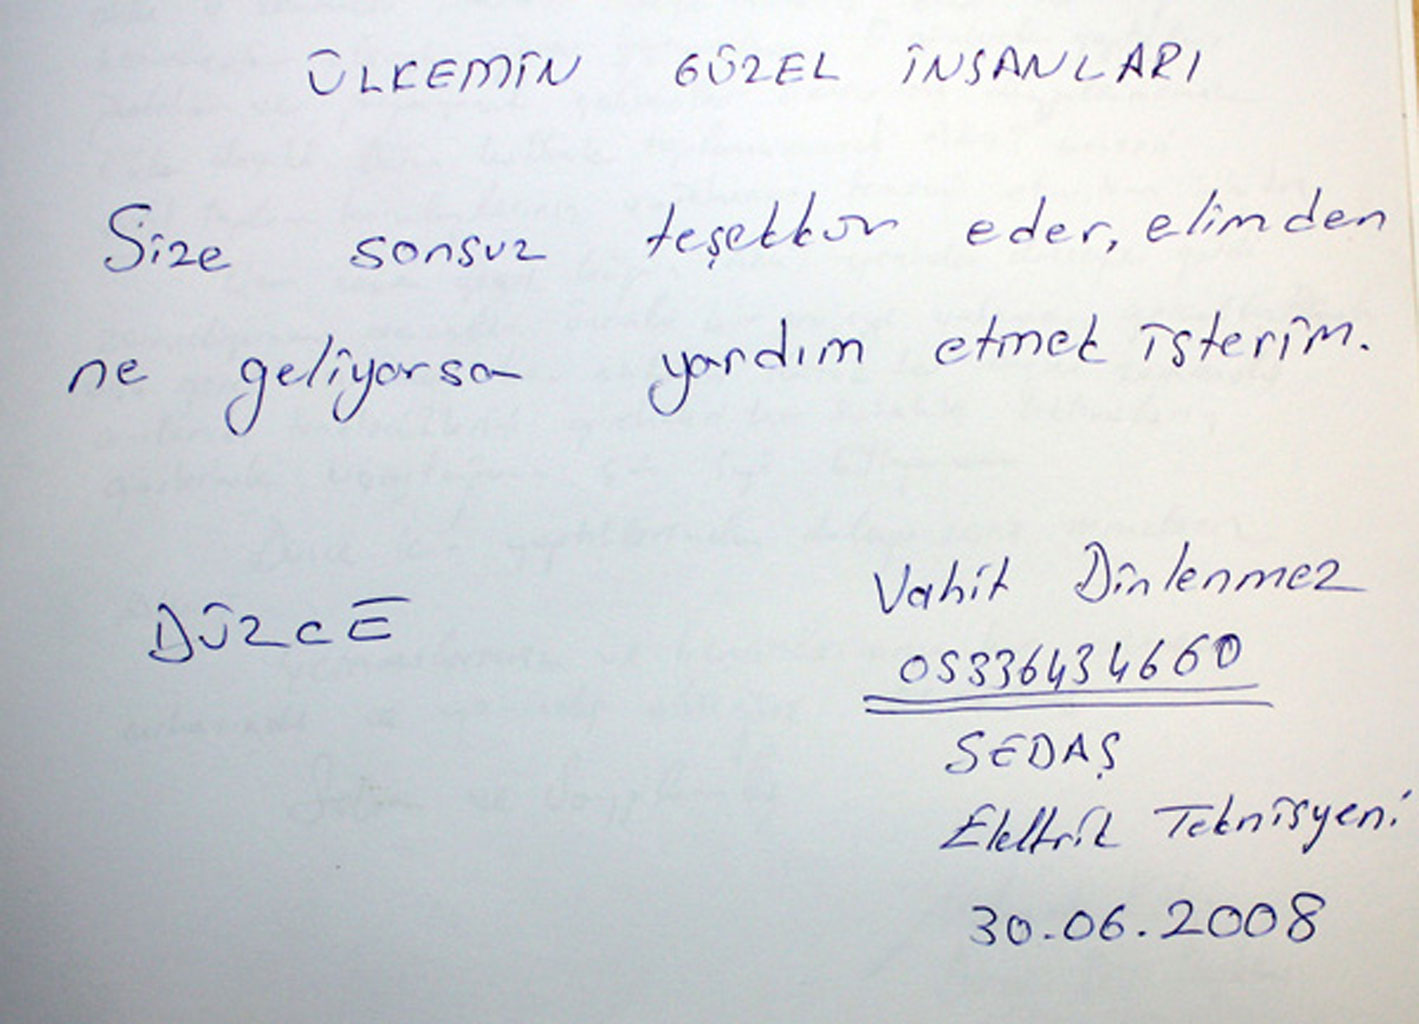 ÜLKEMİN GÜZEL İNSANLARI
Size sonsuz teşekkür eder, elimden
ne geliyorsa yardım etmek isterim.
DÜZCE
Vahit Dinlenmez
05336434660
SEDAŞ
Elektrik Teknisyeni
30.06.2008